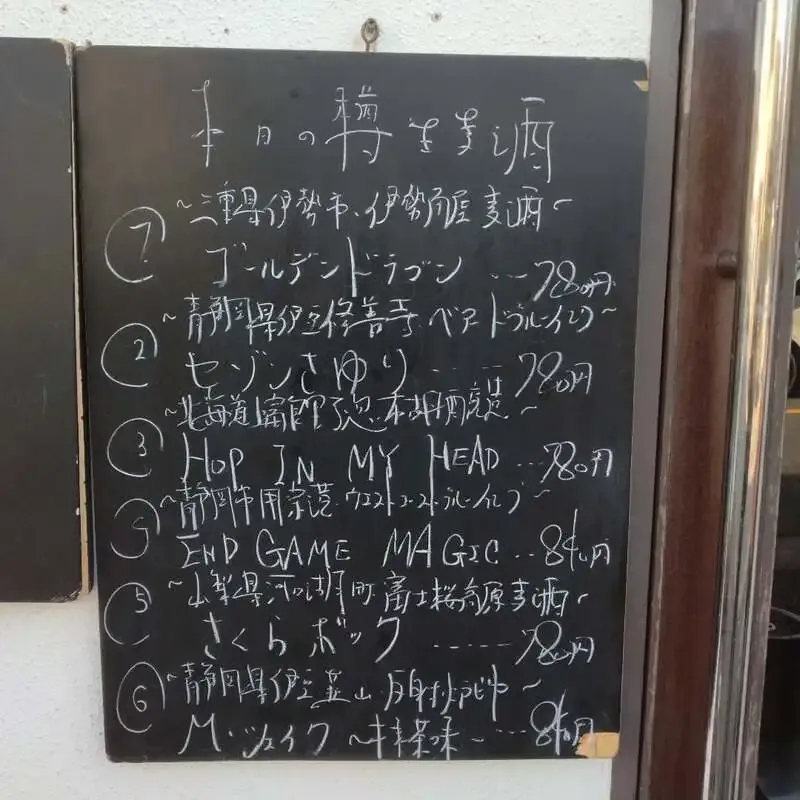 本日の樽生麦酒
① ~三重県伊勢市、伊勢角屋麦酒~
ゴールデンドラゴン ---780円
② ~静岡県伊豆修善寺 ベアードブルーイング~
セゾンさゆり -----780円
③ ~北海道上富良野 忽布古丹醸造~
HOP IN MY HEAD ...780円
④ ~静岡市用宗港 ウエストコーストブルーイング~
END GAME MAGIC ..840円
⑤ ~山梨県河口湖町 富士桜高原麦酒~
さくらボック -----780円
⑥ ~静岡県伊豆韮山 反射炉ビヤ~
M・シェイク ~抹茶味~ ---840円